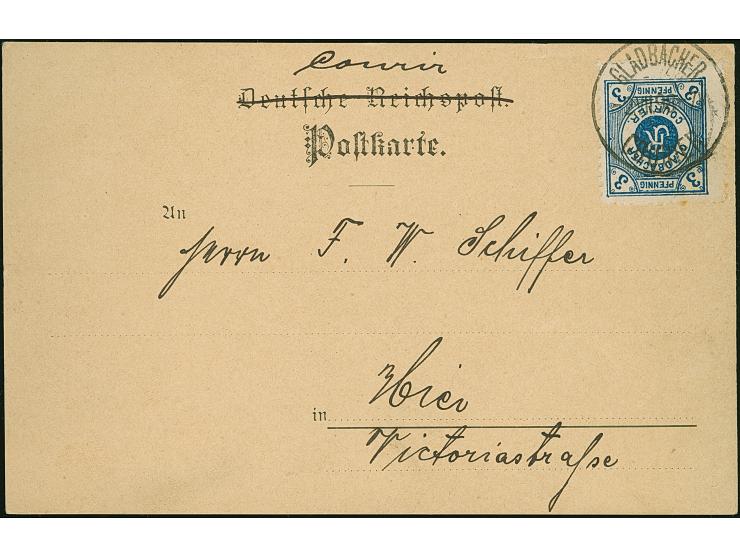 Courir
Deutsche Reichspost.
Postkarte.
An
Herrn F. W. Schiffer
in Hier
Victoriastraße
GLADBACHER
3 PFENNIG 3
GLADBACHER COURIER
3 PFENNIG 3